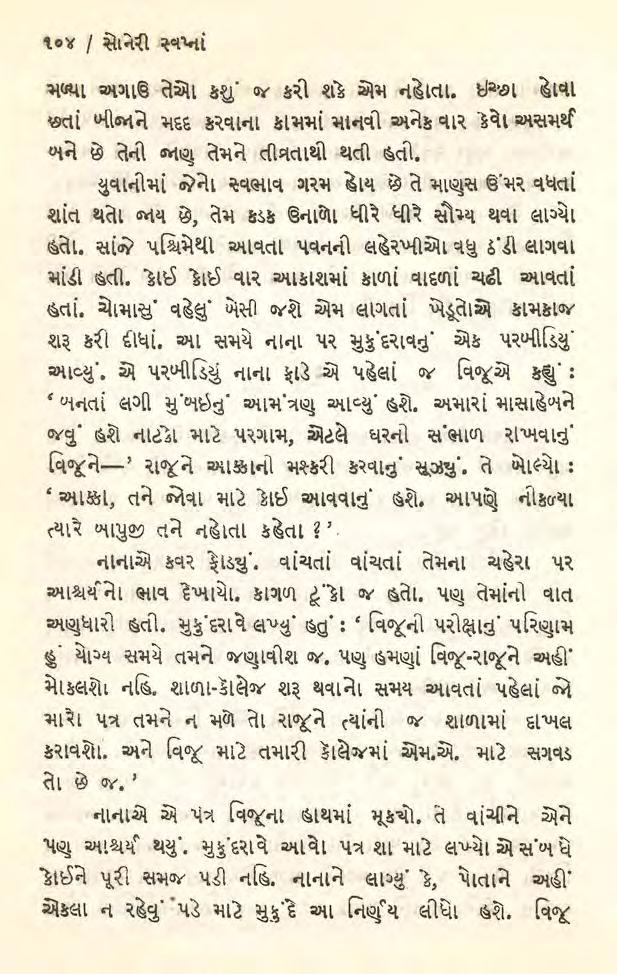 ૧૦૪ / સોનેરી સ્વપ્નાં
મળ્યા અગાઉ તેઓ કશું જ કરી શકે એમ નહોતા. ઇચ્છા હોવા
છતાં બીજાને મદદ કરવાના કામમાં માનવી અનેક વાર કેવો અસમર્થ
બને છે તેની જાણ તેમને તીવ્રતાથી થતી હતી.
યુવાનીમાં જેનો સ્વભાવ ગરમ હોય છે તે માણસ ઉંમર વધતાં
શાંત થતો જાય છે, તેમ કડક ઉનાળો ધીરે ધીરે સૌમ્ય થવા લાગ્યો
હતો. સાંજે પશ્ચિમેથી આવતા પવનની લહેરખીઓ વધુ ઠંડી લાગવા
માંડી હતી. કોઈ કોઈ વાર આકાશમાં કાળાં વાદળાં ચઢી આવતાં
હતાં. ચોમાસું વહેલું બેસી જશે એમ લાગતાં ખેડૂતોએ કામકાજ
શરૂ કરી દીધાં. આ સમયે નાના પર મુકુંદરાવનું એક પરબીડિયું
આવ્યું. એ પરબીડિયું નાના ફાડે એ પહેલાં જ વિજૂએ કહ્યું :
‘ બનતાં લગી મુંબઇનું આમંત્રણ આવ્યું હશે. અમારાં માસાહેબને
જવું હશે નાટકો માટે પરગામ, એટલે ઘરની સંભાળ રાખવાનું
વિજૂને—’ રાજૂને આક્કાની મશ્કરી કરવાનું સૂઝ્યું. તે બોલ્યો :
‘ આક્કા, તને જોવા માટે કોઈ આવવાનું હશે. આપણે નીકળ્યા
ત્યારે બાપુજી તને નહોતા કહેતા ?’
નાનાએ કવર ફોડ્યું. વાંચતાં વાંચતાં તેમના ચહેરા પર
આશ્ચર્યનો ભાવ દેખાયો. કાગળ ટૂંકો જ હતો. પણ તેમાંની વાત
અણધારી હતી. મુકુંદરાવે લખ્યું હતું : ‘ વિજૂની પરીક્ષાનું પરિણામ
હું યોગ્ય સમયે તમને જણાવીશ જ. પણ હમણાં વિજૂ-રાજૂને અહીં
મોકલશો નહિ. શાળા-કૉલેજ શરૂ થવાનો સમય આવતાં પહેલાં જો
મારો પત્ર તમને ન મળે તો રાજૂને ત્યાંની જ શાળામાં દાખલ
કરાવશો. અને વિજૂ માટે તમારી કૉલેજમાં એમ.એ. માટે સગવડ
તો છે જ. ’
નાનાએ એ પત્ર વિજૂના હાથમાં મૂકયો. તે વાંચીને એને
પણ આશ્ચર્ય થયું. મુકુંદરાવે આવો પત્ર શા માટે લખ્યો એ સંબંધે
કોઈને પૂરી સમજ પડી નહિ. નાનાને લાગ્યું કે, પોતાને અહીં
એકલા ન રહેવું પડે માટે મુકુંદે આ નિર્ણય લીધો હશે. વિજૂ